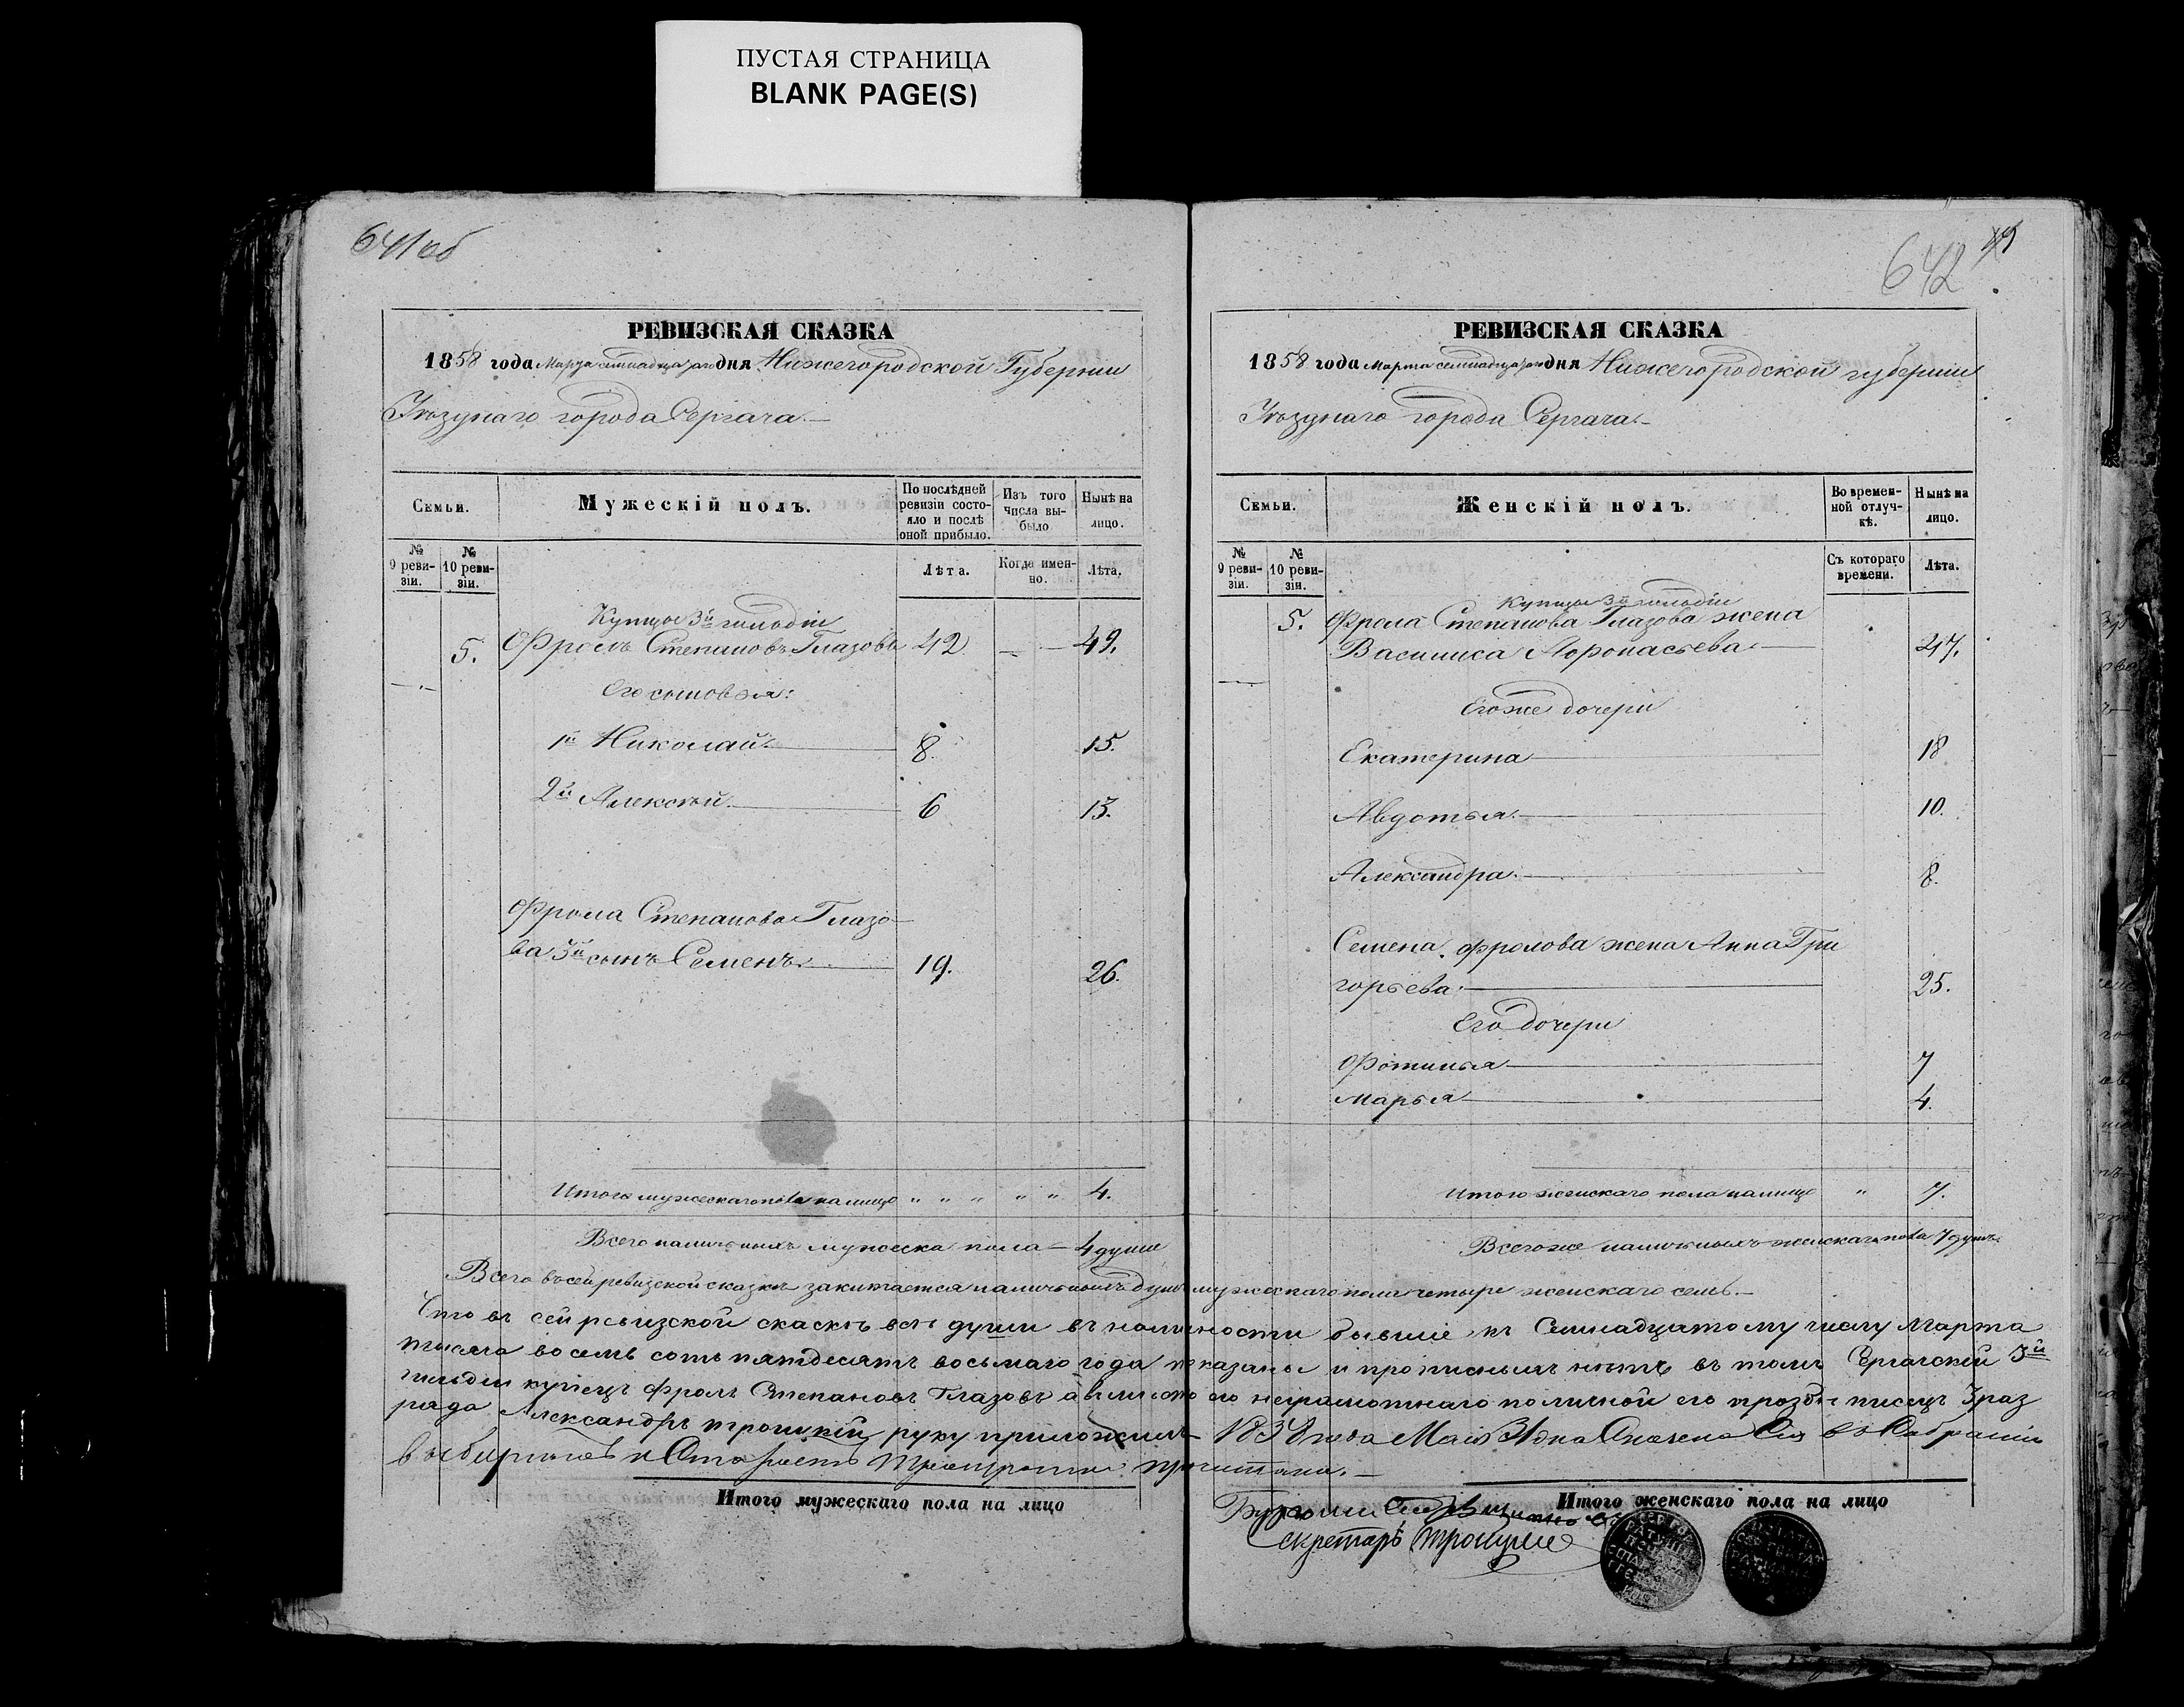 ПУСТАЯ СТРАНИЦА
BLANK PAGE(S)
641 об
РЕВИЗСКАЯ СКАЗКА
1858 года Марта семнадцатаго дня Нижегородской Губернии
Уѣзднаго города Сергача.
Семьи.
Мужескій полъ.
По послѣдней ревизіи состояло и послѣ оной прибыло.
Изъ того числа выбыло
Нынѣ на лицо.
№ 9 ревизіи.
№ 10 ревизіи.
Лѣта.
Когда именно.
Лѣта.
Купцы 3й гильдіи
5. Фролъ Степановъ Глазовъ 42 — — 49.
Его сыновья:
1й Николай 8. 15.
2й Алексѣй 6 13.
Фрола Степанова Глазо-
ва 3й сынъ Семенъ 19. 26.
Итого мужескаго пола на лицо " " " " " 4.
Всего наличныхъ мужеска пола — 4 души
642
РЕВИЗСКАЯ СКАЗКА
1858 года Марта семнадцатаго дня Нижегородской губернии
Уѣзднаго города Сергача.
Семьи.
Женскій полъ.
Во временной отлучкѣ.
Нынѣ на лицо.
№ 9 ревизіи.
№ 10 ревизіи.
Съ котораго времени.
Лѣта.
Купцы 3й гильдіи
5. Фрола Степанова Глазова жена
Василиса 47.
Его же дочери
Екатерина 18
Авдотья 10.
Александра 8.
Семена Фролова жена Анна Гри
горьева 25.
Его дочери
Фотинья 7
Марья 4.
Итого женскаго пола налицо " 7.
Всего же наличныхъ женскаго пола 7 душъ
Всего въ сей ревизской сказкѣ заключается наличныхъ душъ мужескаго пола четыре женскаго семь.
Что въ сей ревизской скаскѣ всѣ души въ наличности бывшіе къ Семнадцатому числу Марта
тысяча восемь сотъ пятдесятъ восьмаго года показаны и прописныхъ нѣтъ въ томъ Сергачский 3й
гильдии купецъ Фролъ Степановъ Глазовъ а вместо его неграмотнаго по личной его прозбѣ писецъ 3 раз
ряда Александръ Троицкій руку приложилъ 1858 года Маія 31 дня Сказка Сия въ Собраніи
прочитана.
Итого мужескаго пола на лицо
Итого женскаго пола на лицо
Секретарь